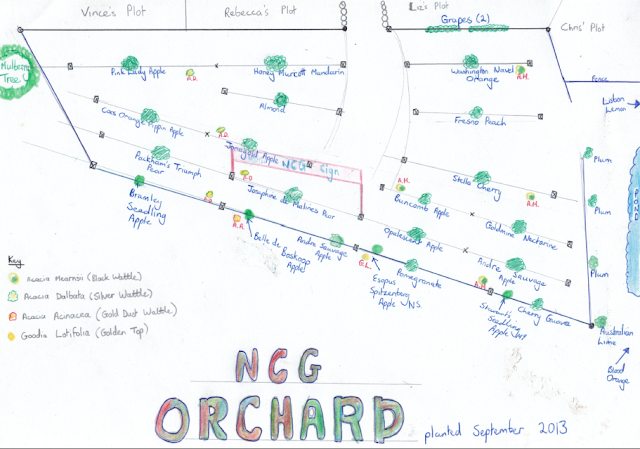 Vince's Plot
Rebecca's Plot
Liz's Plot
Grapes (2)
Chris' Plot
Mulberry
Tree
Pink Lady Apple
A.D.
Honey Murcott Mandarin
Washington Navel
Orange
A.H.
Fence
Lisbon
Lemon
Almond
Fresno Peach
Coxs Orange Pippin Apple
A.D.
Jonagold Apple
NCG Sign
Plum
Packham's Triumph
Pear
A.D.
Josephine de Malines Pear
Stella Cherry
A.H.
A.H.
Buncomb Apple
Goldmine Nectarine
Plum
POND
Bramley
Seedling
Apple
A.D.
A.A.
Belle de
Boskoop
Apple
Andre Sauvage
Apple
Opalescent Apple
Andre
Sauvage
Apple
Plum
G.L.
Esopus
Spitzenberg
Apple NS
Pomegranate
A.H.
Seedling
Cherry Guava
Australian
Lime
Blood
Orange
Key
Acacia Mearnsii (Black Wattle)
Acacia Dalbata (Silver Wattle)
Acacia Acinacea (Gold Dust Wattle)
Goodia Lotifolia (Golden Top)
NCG
ORCHARD
planted September 2013